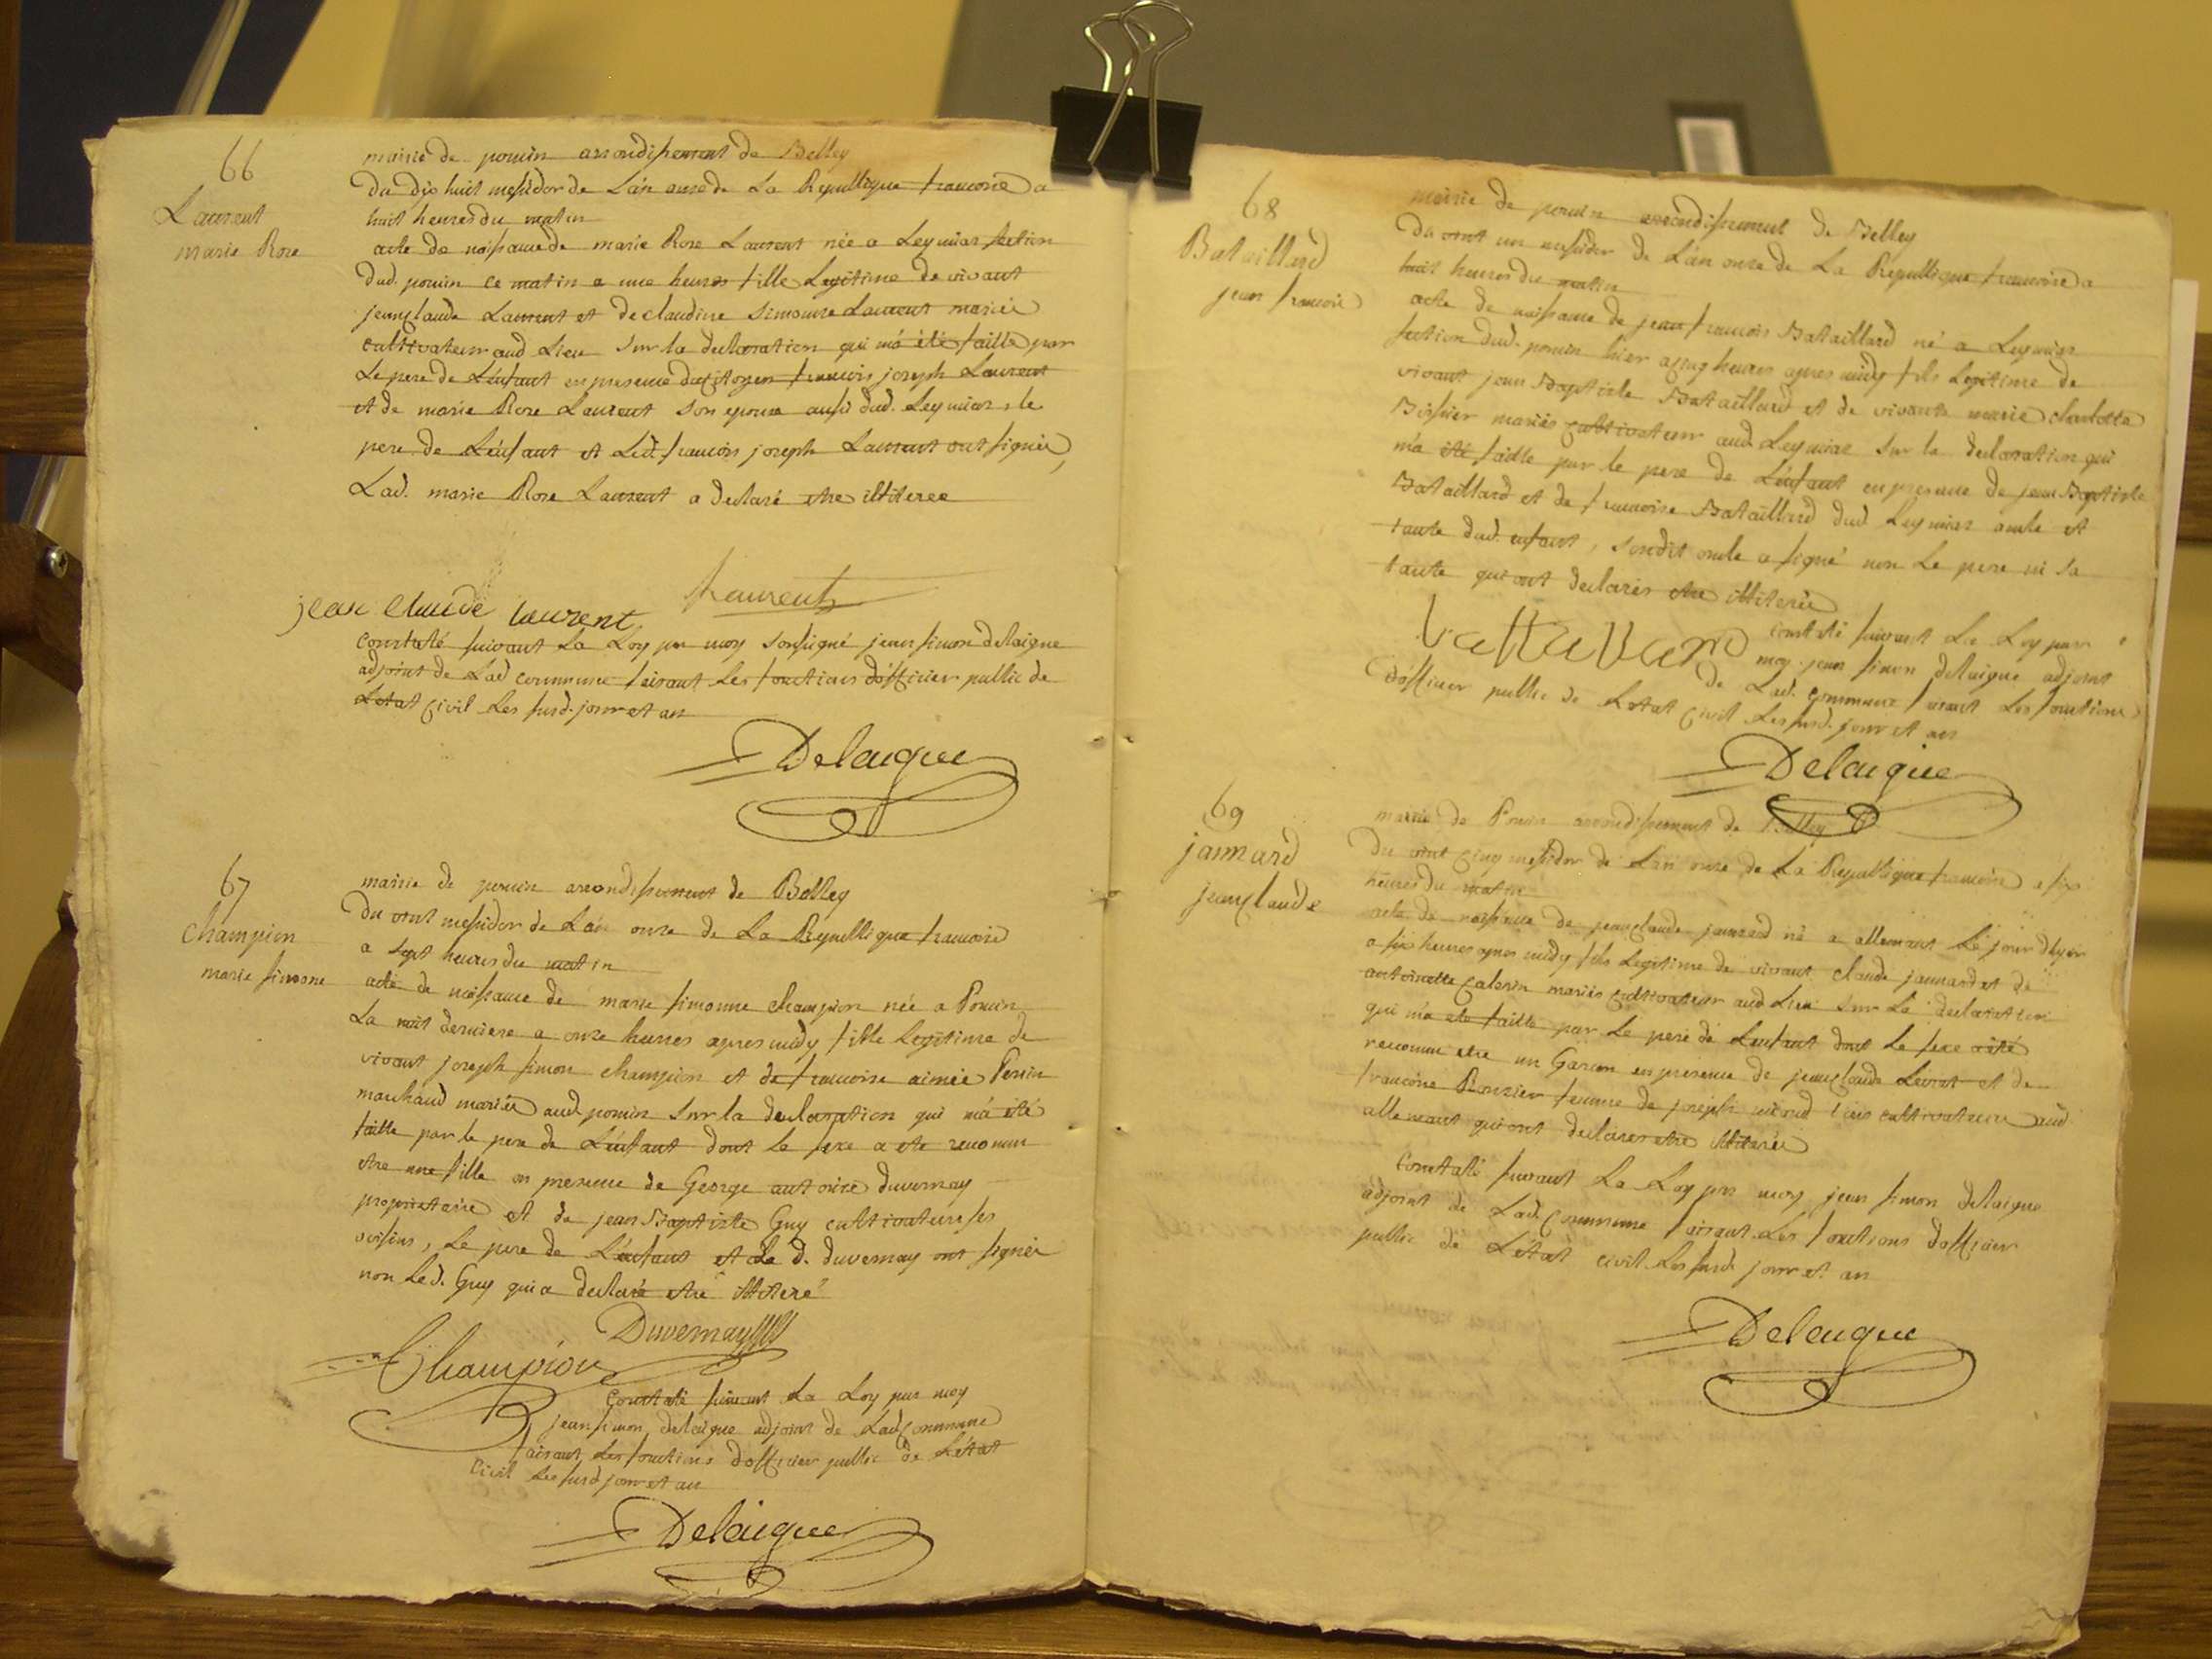 66
Laurent
marie Rose
mairie de poncin arrondissement de Belley
du dix huit messidor de L'an onze de La Republique francoise a
huit heures du matin
acte de naissance de marie Rose Laurent née a Leymiat section
dud. poncin ce matin a une heures fille Legitime de vivant
jean claude Laurent et de claudine simonne Laurent mariés
cultivateur aud Lieu sur la declaration qui m'a été faitte par
Le pere de L'enfant en presence du citoyen francois joseph Laurent
et de marie Rose Laurent son epouse aussi dud. Leymiat, le
pere de L'enfant et Led. francois joseph Laurent ont signés,
Lad. marie Rose Laurent a declaré etre illiteree
Laurent
jean claude laurent
constaté suivant La Loy par moy sousigné jean simon delaigue
adjoint de Lad commune faisant Les fonctions d'officier public de
L'etat civil Les susd. jour et an
Delaigue
67
Champion
marie simonne
mairie de poncin arrondissement de Belley
Du vint messidor de L'an onze de La Republique francoise
a sept heures du matin
acte de naissance de marie simonne Champion née a Poncin
La nuit derniere a onze heures apres midy fille legitime de
vivant joseph simon champion et de francoise aimée Perrin
marchand mariés aud poncin sur la declaration qui m'a été
faitte par le pere de L'enfant dont Le sexe a ete reconnu
etre une fille en presence de George antoine duvernay
proprietaire et de jean Baptiste Guy cultivateurs ses
voisins, Le pere de L'enfant et Le d. duvernay ont signés
non Led. Guy qui a declaré etre illiteré
Duvernay
Champion
constaté suivant La Loy par moy
jean simon delaigue adjoint de Lad commune
faisant Les fonctions d'officier public de L'état
civil Les susd jour et an
Delaigue
68
Bataillard
jean francois
mairie de poncin arrondissement de Belley
Du vint un messidor de L'an onze de La Republique francoise a
huit heures du matin
acte de naissance de jean francois Bataillard né a Leymiat
section dud. poncin hier a cinq heures apres midy fils Legitime de
vivant jean Baptiste Bataillard et de vivante marie charlotte
mariés cultivateur aud Leymiat sur la declaration qui
m'a été faitte par le pere de L'enfant en presence de jean Baptiste
Bataillard et de francoise Bataillard dud Leymiat oncle et
tante dud. enfant, sondit oncle a signé non Le pere ni sa
tante qui ont declarés etre illiterés
constaté suivant La Loy par
moy jean simon delaigue adjoint
de Lad. commune faisant Les fonctions
d'officier public de L'etat civil Les susd. jour et an
Delaigue
69
jannard
jean claude
mairie de Poncin arrondissement de Belley
Du vint cinq messidor de L'an onze de La Republique francoise a six
heures du matin
acte de naissance de jean claude jannard né a allemant Le jour d'hyer
a six heures apres midy fils Legitime de vivant claude jannard et de
antoinette mariés cultivateur aud Lieu sur La declaration
qui m'a ete faitte par Le pere de L'enfant dont Le sexe a été
reconnu etre un Garcon en presence de jean claude et de
francoise femme de joseph tous cultivateurs aud
allemant qui ont declarés etre illiterés
Constaté suivant La Loy par moy jean simon delaigue
adjoint de Lad. Commune faisant Les fonctions d'officier
public de L'état civil Les susd. jour et an
Delaigue